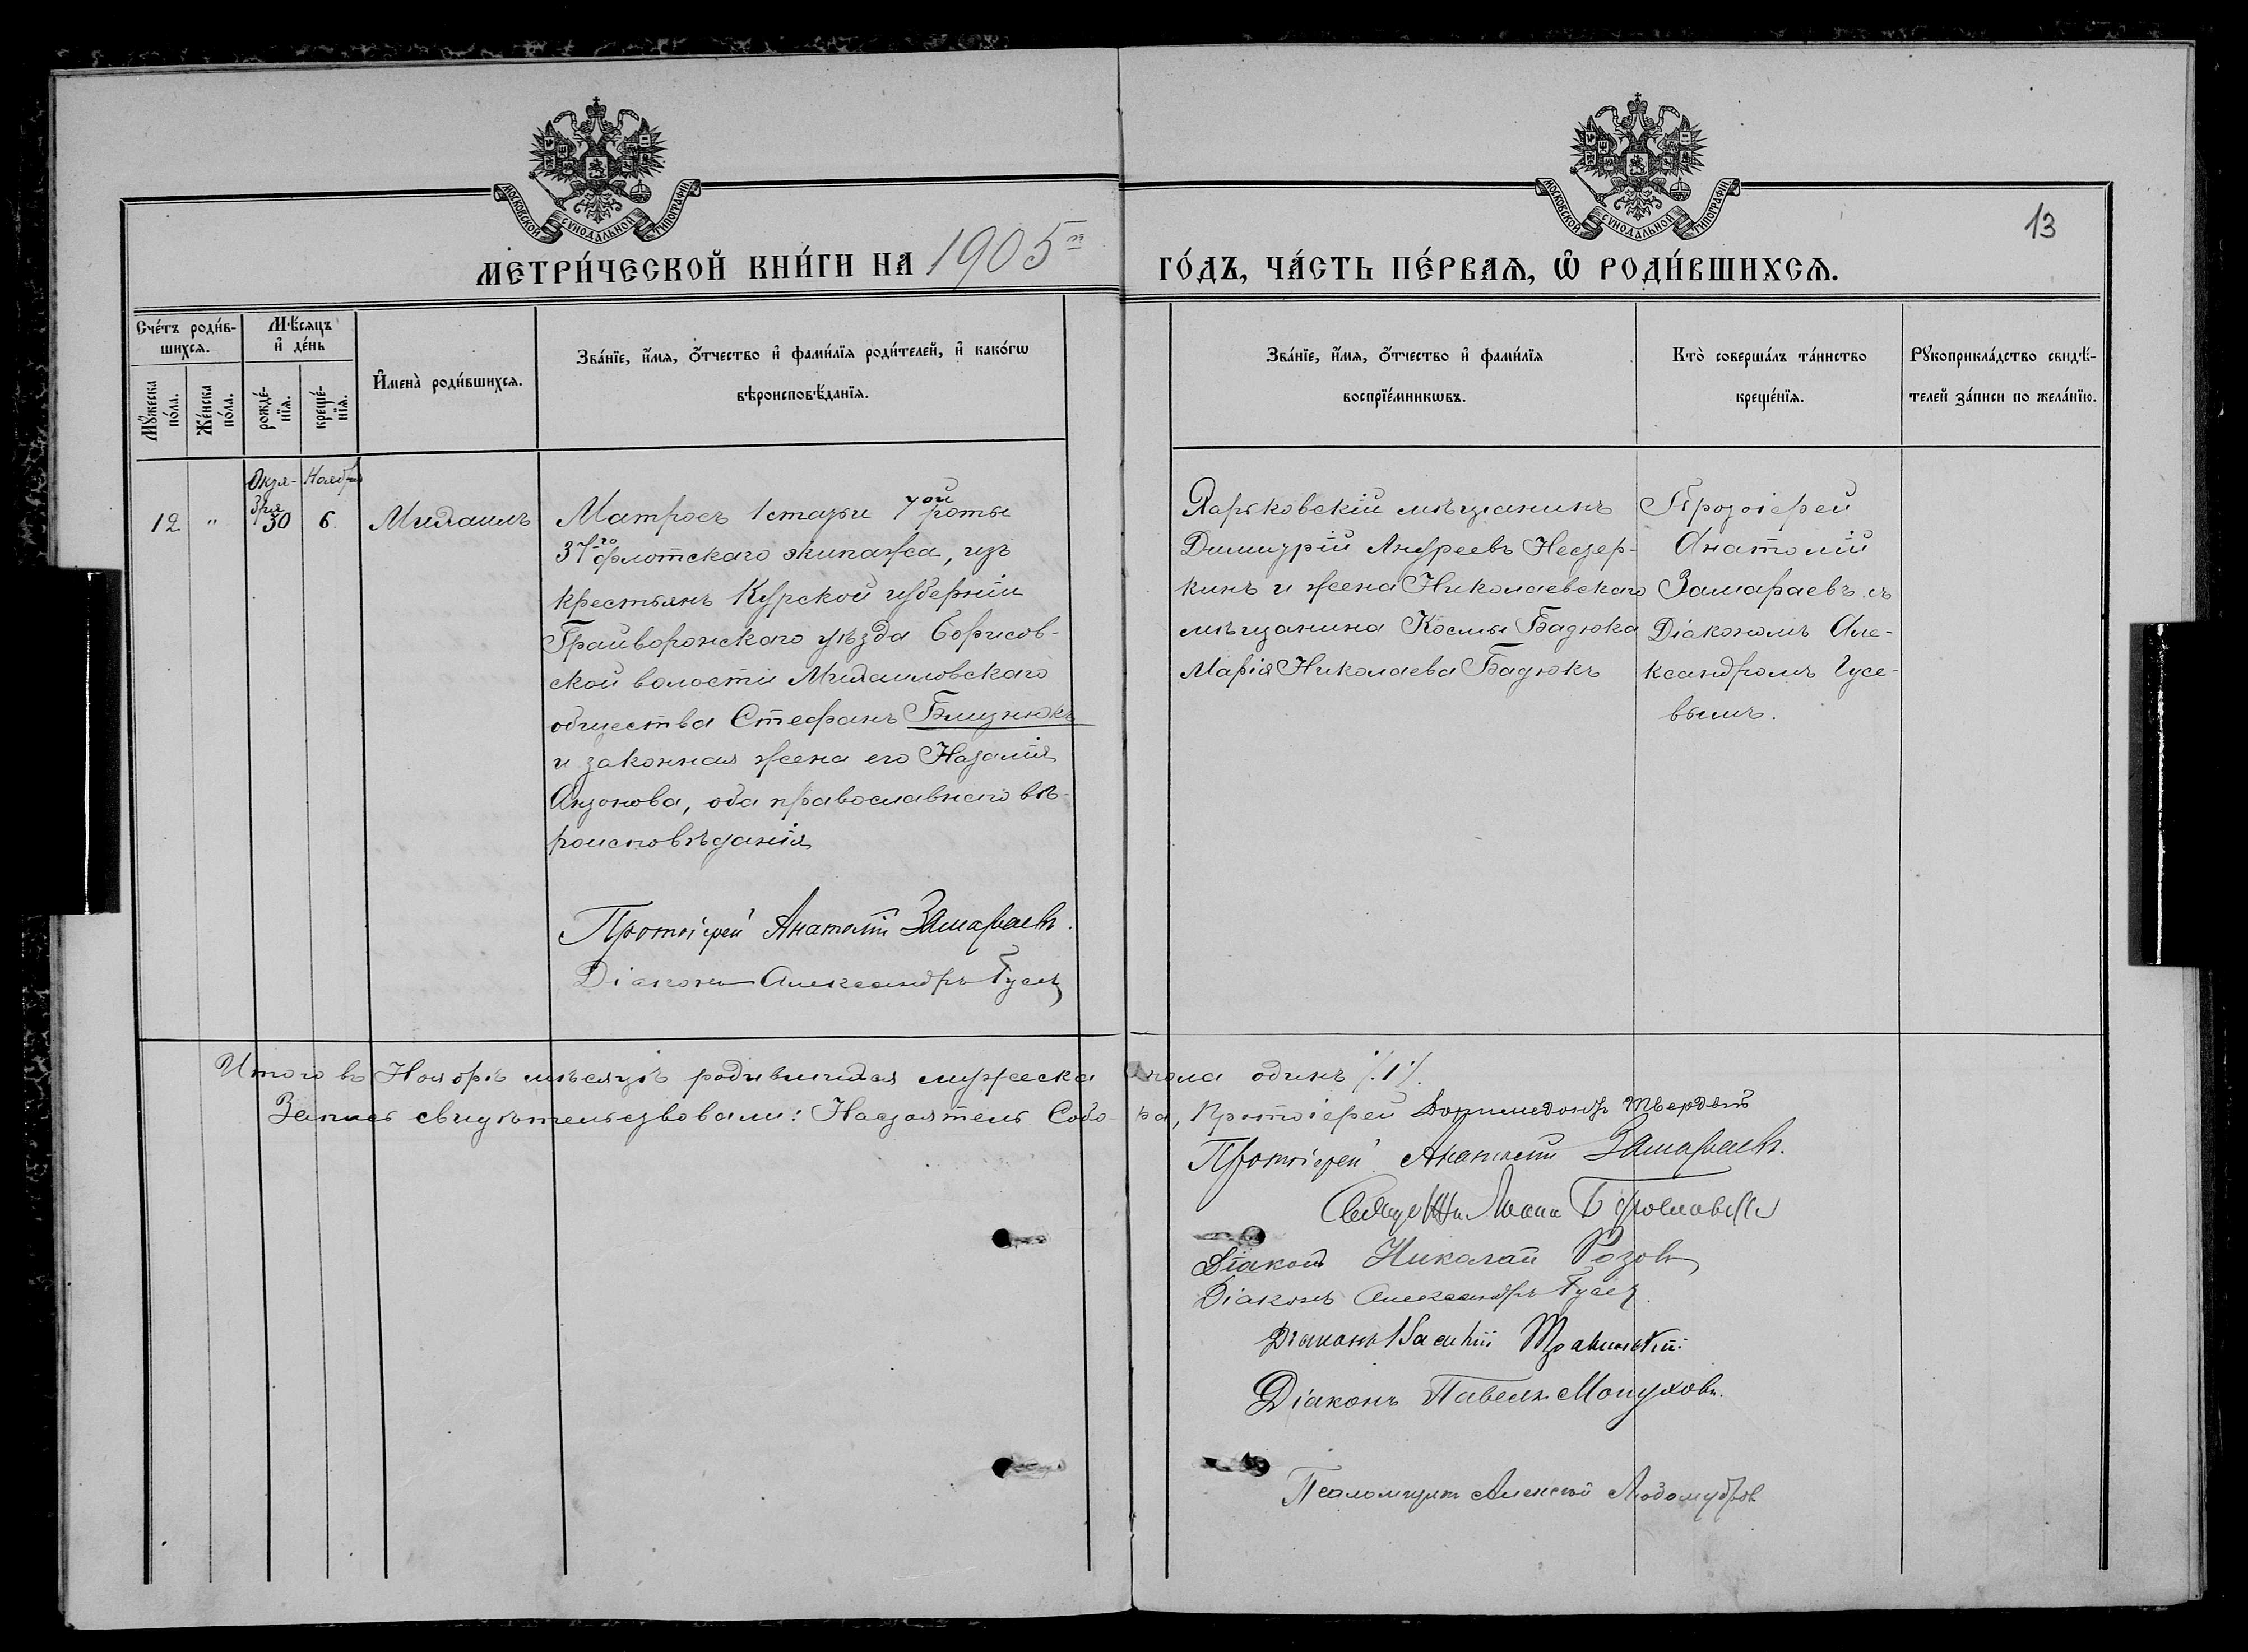 МОСКОВСКОЙ СѴНОДАЛЬНОЙ ТИПОГРАФІИ
МОСКОВСКОЙ СѴНОДАЛЬНОЙ ТИПОГРАФІИ
13
МЕТРИ́ЧЕСКОЙ КНИ́ГИ НА 1905й
ГО́ДЪ, ЧА́СТЬ ПЕ́РВАѦ, Ѡ҆ РОДИ́ВШИХСѦ.
Сче́тъ роди́в-
шихсѧ.
Мꙋ́жеска по́ла.
Же́нска по́ла.
Мѣ́сѧцъ
и҆ де́нь
рожде́-
нїѧ.
креще́-
нїѧ.
И҆мена̀ роди́вшихсѧ.
Зва́нїе, и҆́мѧ, ѻ҆́тчество и҆ фами́лїѧ роди́телей, и҆ како́гѡ
вѣроисповѣ́данїѧ.
Зва́нїе, и҆́мѧ, ѻ҆́тчество и҆ фами́лїѧ
воспрїе́мникѡвъ.
Кто̀ соверша́лъ та́инство
креще́нїѧ.
Рꙋкоприкла́дство свидѣ́-
телей за́писи по жела́нїю.
Октя-
бря
Ноября
12 " 30 6. Михаилъ
Матросъ 1 статьи 7ой роты
37го флотскаго экипажа, изъ
крестьянъ Курской губерніи
Грайворонскаго уѣзда Борисов-
ской волости Михаиловскаго
общества Стефанъ Близнюкъ
и законная жена его Наталія
Антонова, оба православнаго вѣ-
роисповѣданія
Протоіерей Анатолій Замараевъ.
Діаконъ Александръ Гусевъ
Харьковскій мѣщанинъ
Димитрій Андреевъ Нестер-
кинъ и жена Николаевскаго
мѣщанина Космы Бадюка
Марія Николаева Бадюкъ
Протоіерей
Анатолій
Замараевъ съ
Діакономъ Але-
ксандромъ Гусе-
вымъ.
Итого въ Ноябрѣ мѣсяцѣ родившихся мужеска пола одинъ /.1./.
Запись свидѣтельствовали: Настоятель Собо-ра, Протоіерей Доримедонтъ Твердый
Протоіерей Анатолій Замараевъ.
Діаконъ Николай Розовъ
Діаконъ Александръ Гусевъ
Діаконъ Василій
Діаконъ Павелъ
Псаломщикъ Алексѣй Любомудровъ